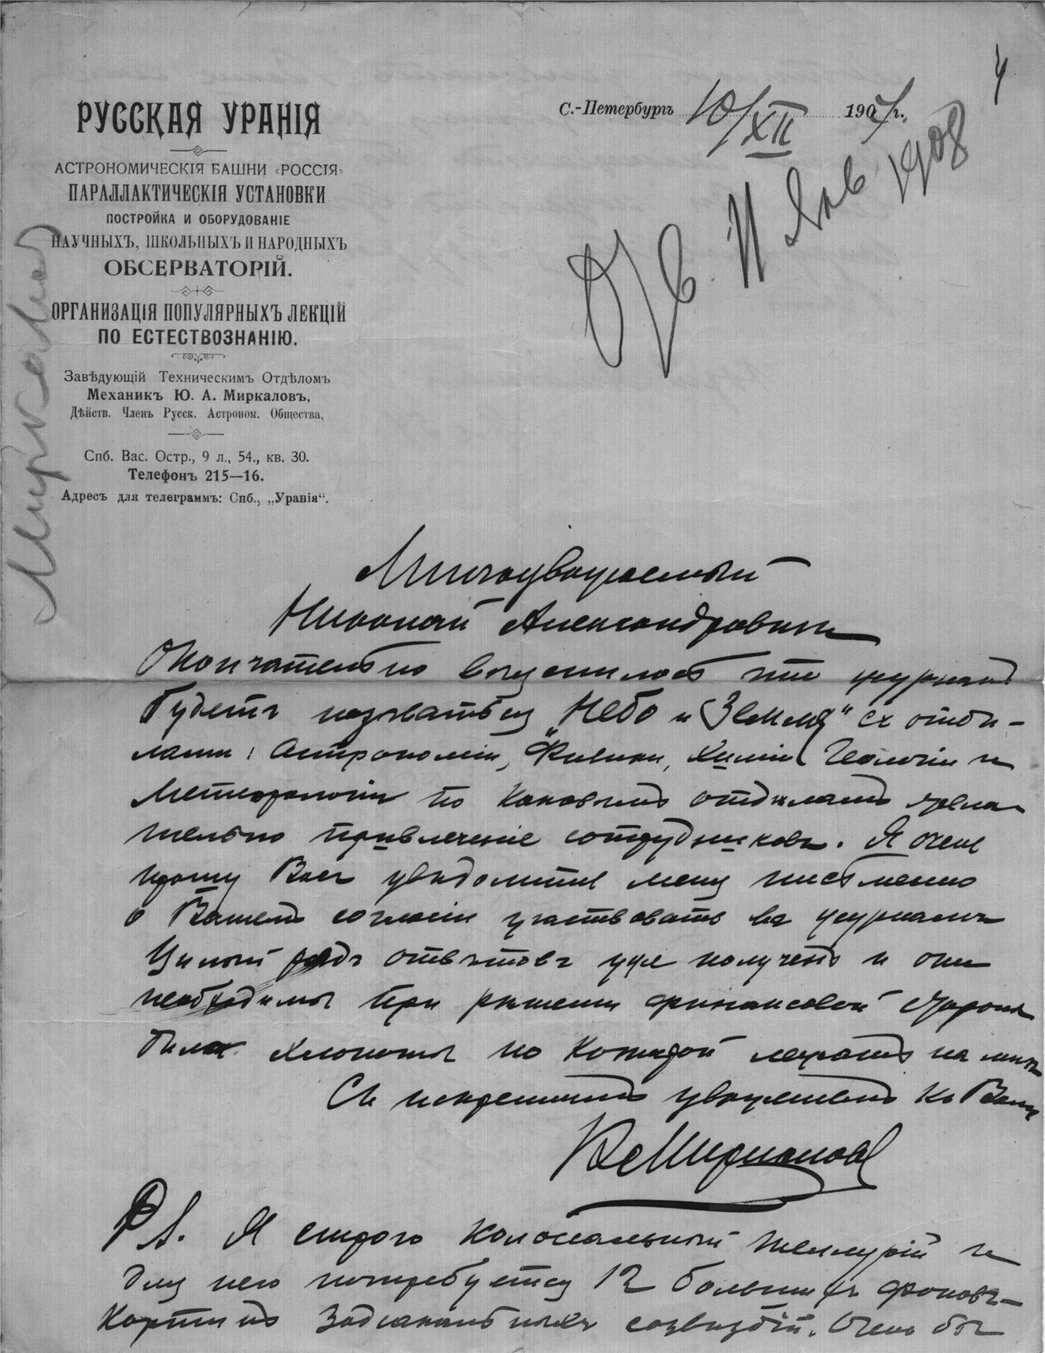 4
С.-Петербургъ 10/XII 1907 г.
Отв. 11 Янв 1908
РУССКАЯ УРАНІЯ
АСТРОНОМИЧЕСКІЯ БАШНИ «РОССІЯ»
ПАРАЛЛАКТИЧЕСКІЯ УСТАНОВКИ
ПОСТРОЙКА И ОБОРУДОВАНІЕ
НАУЧНЫХЪ, ШКОЛЬНЫХЪ И НАРОДНЫХЪ
ОБСЕРВАТОРІЙ.
ОРГАНИЗАЦІЯ ПОПУЛЯРНЫХЪ ЛЕКЦІЙ
ПО ЕСТЕСТВОЗНАНІЮ.
Завѣдующій Техническимъ Отдѣломъ
Механикъ Ю. А. Миркаловъ,
Дѣйств. Членъ Русск. Астроном. Общества,
Спб. Вас. Остр., 9 л., 54., кв. 30.
Телефонъ 215—16.
Адресъ для телеграммъ: Спб., „Уранія“.
Миркалов
Многоуважаемый
Николай Александровичъ
Окончательно выяснилось что журналъ
будетъ называться „Небо и Земля" съ отдѣ-
лами: Астрономіи, Физики, Химіи Геологіи и
Метеорологіи по каковымъ отдѣламъ жела-
тельно привлеченіе сотрудниковъ. Я очень
прошу Васъ увѣдомить меня письменно
о Вашемъ согласіи участвовать въ журналѣ
Цѣлый рядъ отвѣтовъ уже полученъ и они
необходимы при рѣшеніи финансовой стороны
дѣла хлопоты по которой лежатъ на мнѣ
Съ искреннимъ уваженіемъ къ Вамъ
Миркаловъ
PS. Я строю колоссальный теллурій и
для него потребуется 12 большихъ фоновъ-
картинъ Зодіакальныхъ созвѣздій. Очень бы